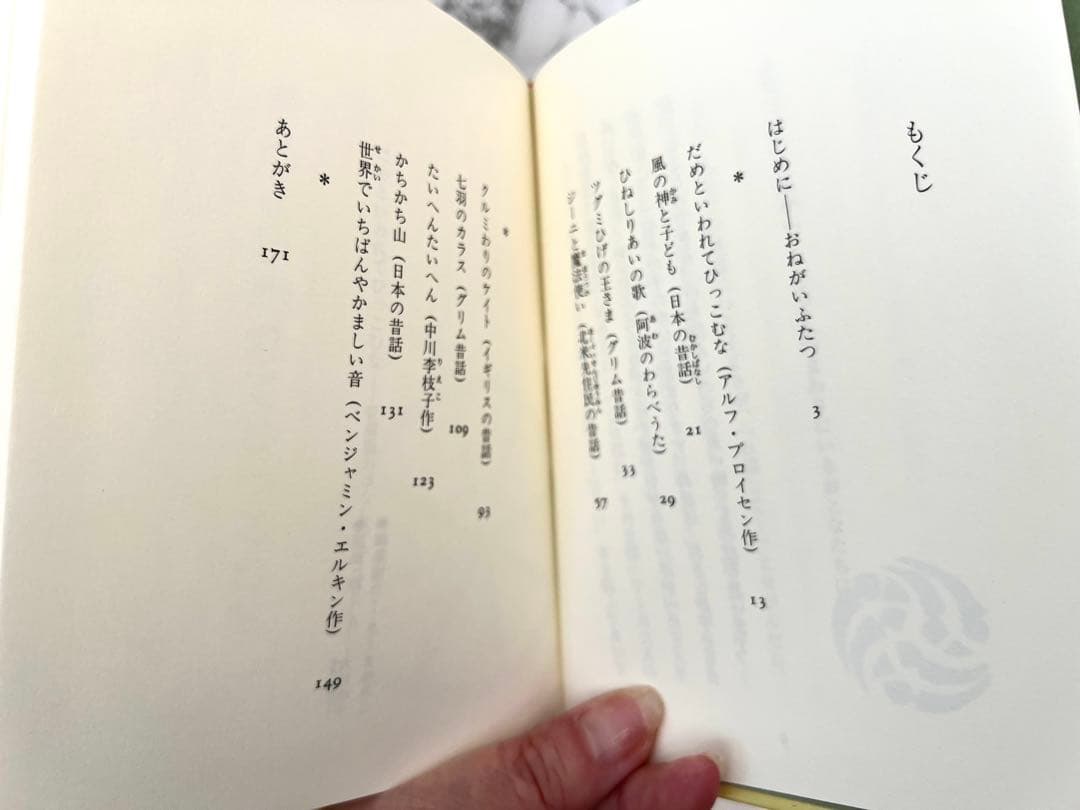 もくじ
はじめに――おねがいふたつ 3
*
だめといわれてひっこむな（アルフ・プロイセン作） 13
風の神と子ども（日本の昔話） 21
ひねしりあいの歌（阿波のわらべうた） 29
ツグミひげの王さま（グリム昔話） 33
ジーニと魔法使い（北米先住民の昔話） 57
*
クルミわりのケイト（イギリスの昔話） 93
七羽のカラス（グリム昔話） 109
たいへんたいへん（中川李枝子作） 123
かちかち山（日本の昔話） 131
世界でいちばんやかましい音（ベンジャミン・エルキン作） 149
*
あとがき 171